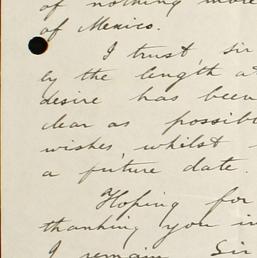 of nothing more
of Mexico.
I trust, sir
by the length
desire has been
clear as possib
wishes, whilst
a future date.
Hoping for
thanking you in
I remain Sir